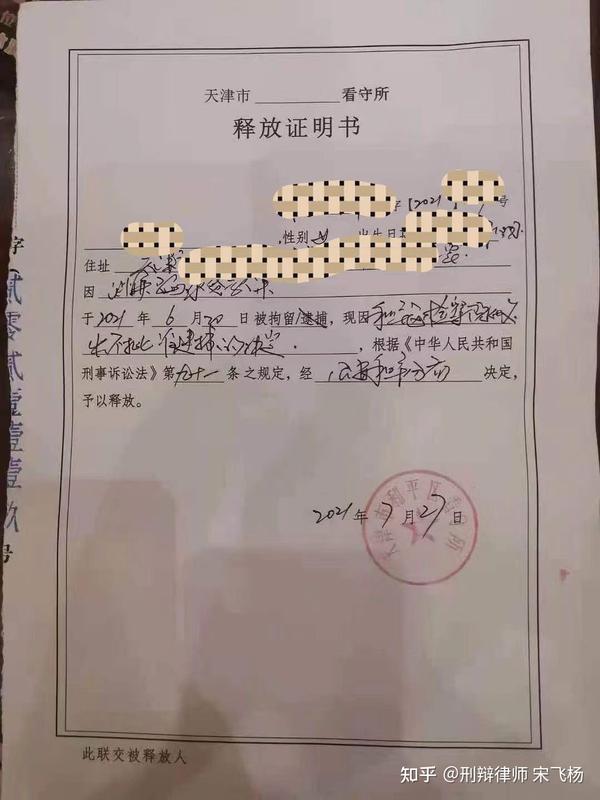 天津市 看守所
释放证明书
字【2021】 号
性别 女 出生日
住址 天津
因 涉嫌
于 2021 年 6 月 20 日被拘留/逮捕，现因 和平区检察院
出不批准逮捕的决定 ，根据《中华人民共和国
刑事诉讼法》第 九十一 条之规定，经 公安和平分局 决定，
予以释放。
2021 年 7 月 27 日
天津市和平区看守所
此联交被释放人
字
贰零贰壹壹壹玖
号
知乎 @刑辩律师 宋飞杨